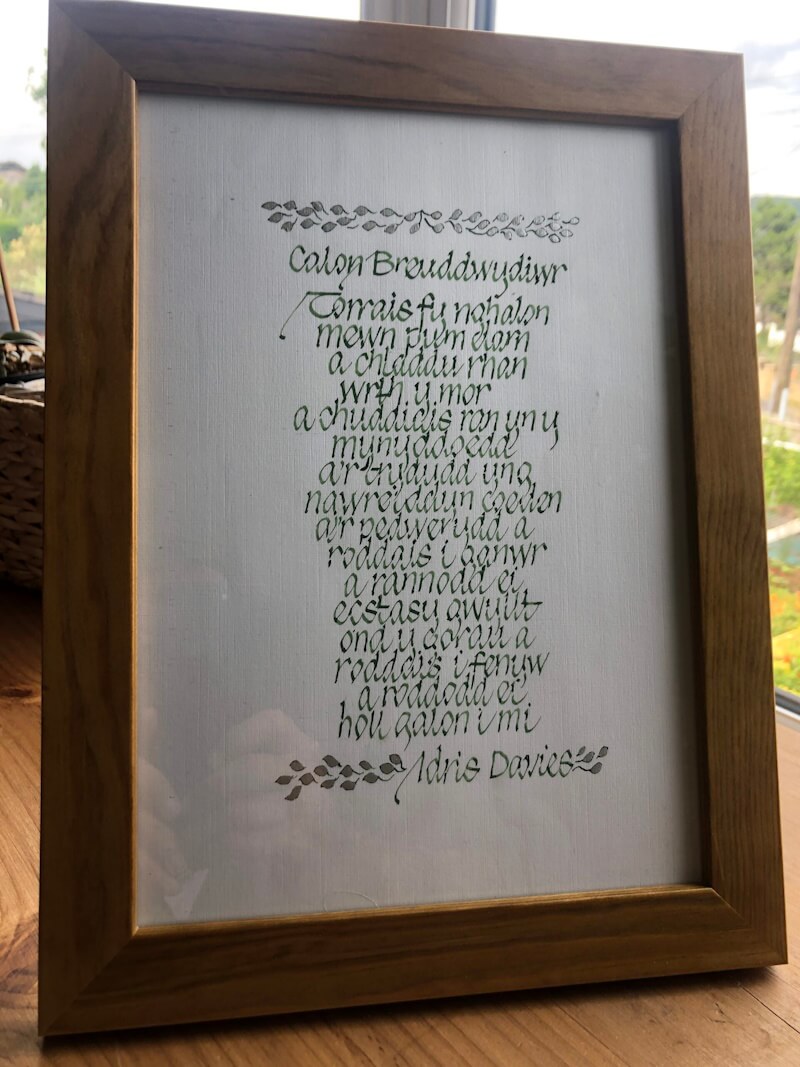 Calon Breuddwydiwr
Torrais fy nghalon
mewn pum darn
a chladdu rhan
wrth y mor
a chuddiais ran yn y
mynyddoedd
a'r trydydd yng
nawreiddyn coeden
a'r pedwerydd a
roddais i ganwr
a rannodd ei
ecstasy gwyllt
ond y gorau a
roddais i fenyw
a roddodd ei
holl galon i mi
Idris Davies